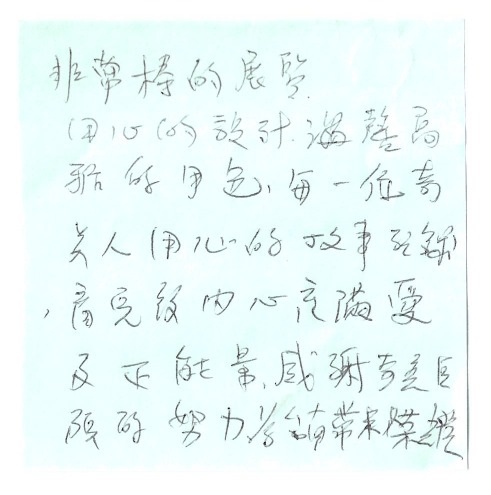 非常棒的展覽.
用心的設計.溫馨高
雅的用色、每一位奇
美人用心的故事
,看完後內心充滿愛
及正能量、感謝奇美團
隊的努力 帶來榮耀